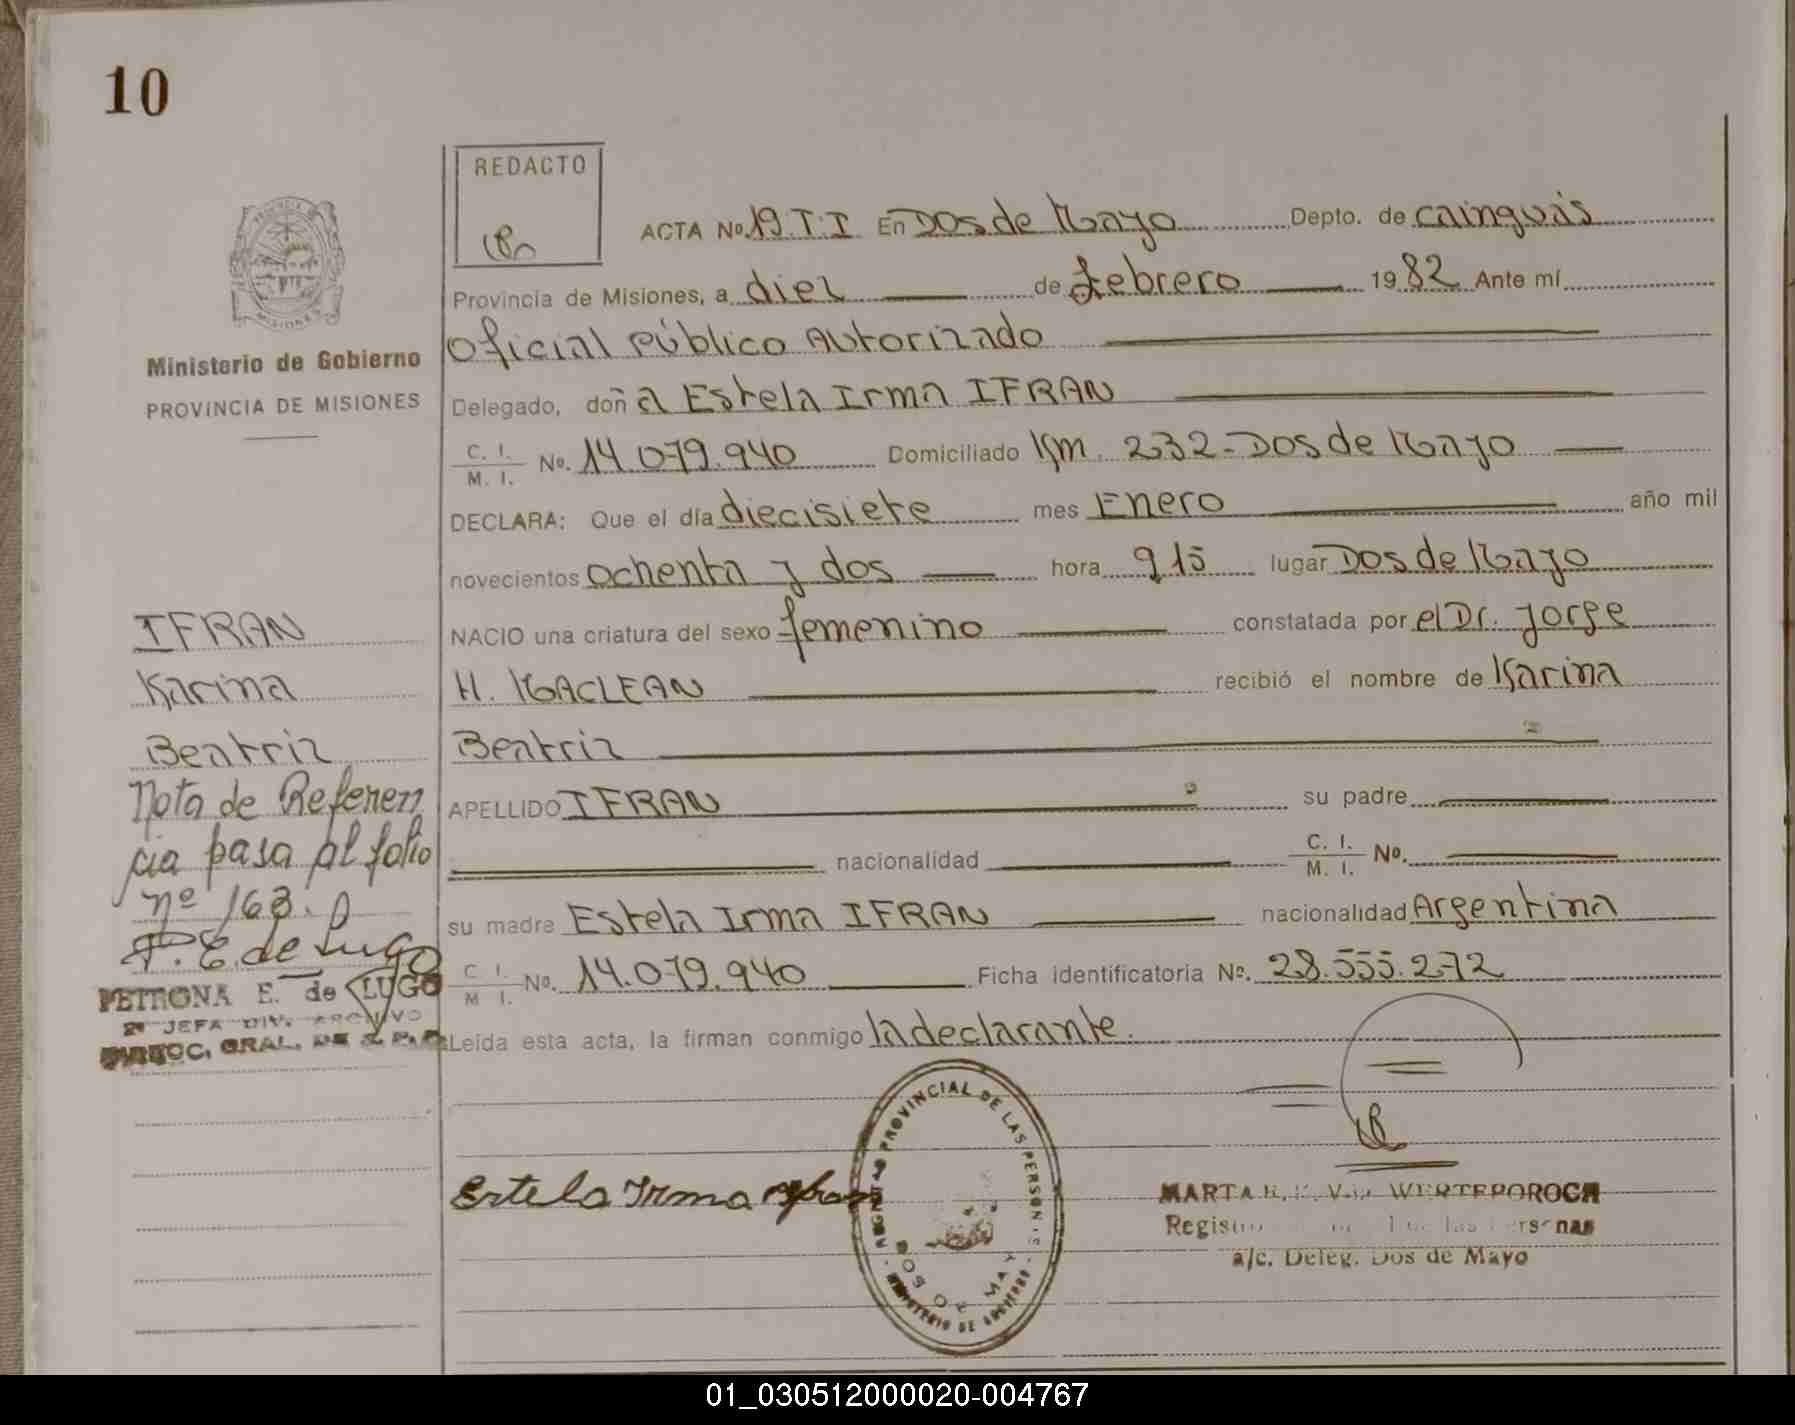 10
REDACTO
PROVINCIA DE
MISIONES
Ministerio de Gobierno
PROVINCIA DE MISIONES
ACTA No. 19. T. I En Dos de Mayo Depto. de Cainguás
Provincia de Misiones, a diez de febrero 1982 Ante mí
Oficial Público Autorizado
Delegado, doña Estela Irma IFRAN
C. I. M. I. No. 14.079.940 Domiciliado Km. 232-Dos de Mayo
DECLARA: Que el día diecisiete mes Enero año mil
novecientos ochenta y dos hora 9 15 lugar Dos de Mayo
NACIO una criatura del sexo femenino constatada por el Dr. Jorge
H. MACLEAN recibió el nombre de Karina
Beatriz
APELLIDO IFRAN su padre
nacionalidad C. I. M. I. No.
su madre Estela Irma IFRAN nacionalidad Argentina
C. I. M. I. No. 14.079.940 Ficha identificatoria No. 28.555.272
Leída esta acta, la firman conmigo la declarante.
IFRAN
Karina
Beatriz
Nota de Referen
cia pasa al folio
nº 163.
P. E. de Lugo
PETRONA E. de LUGO
2ª JEFA DIV. ARCHIVO
GRAL. DE
Estela Irma Ifran
PROVINCIAL DE LAS PERSONAS
DOS DE MAYO
MINISTERIO DE GOBIERNO
MARTA WERTEPOROCH
Registro de las Personas
a/c. Deleg. Dos de Mayo
01_030512000020-004767